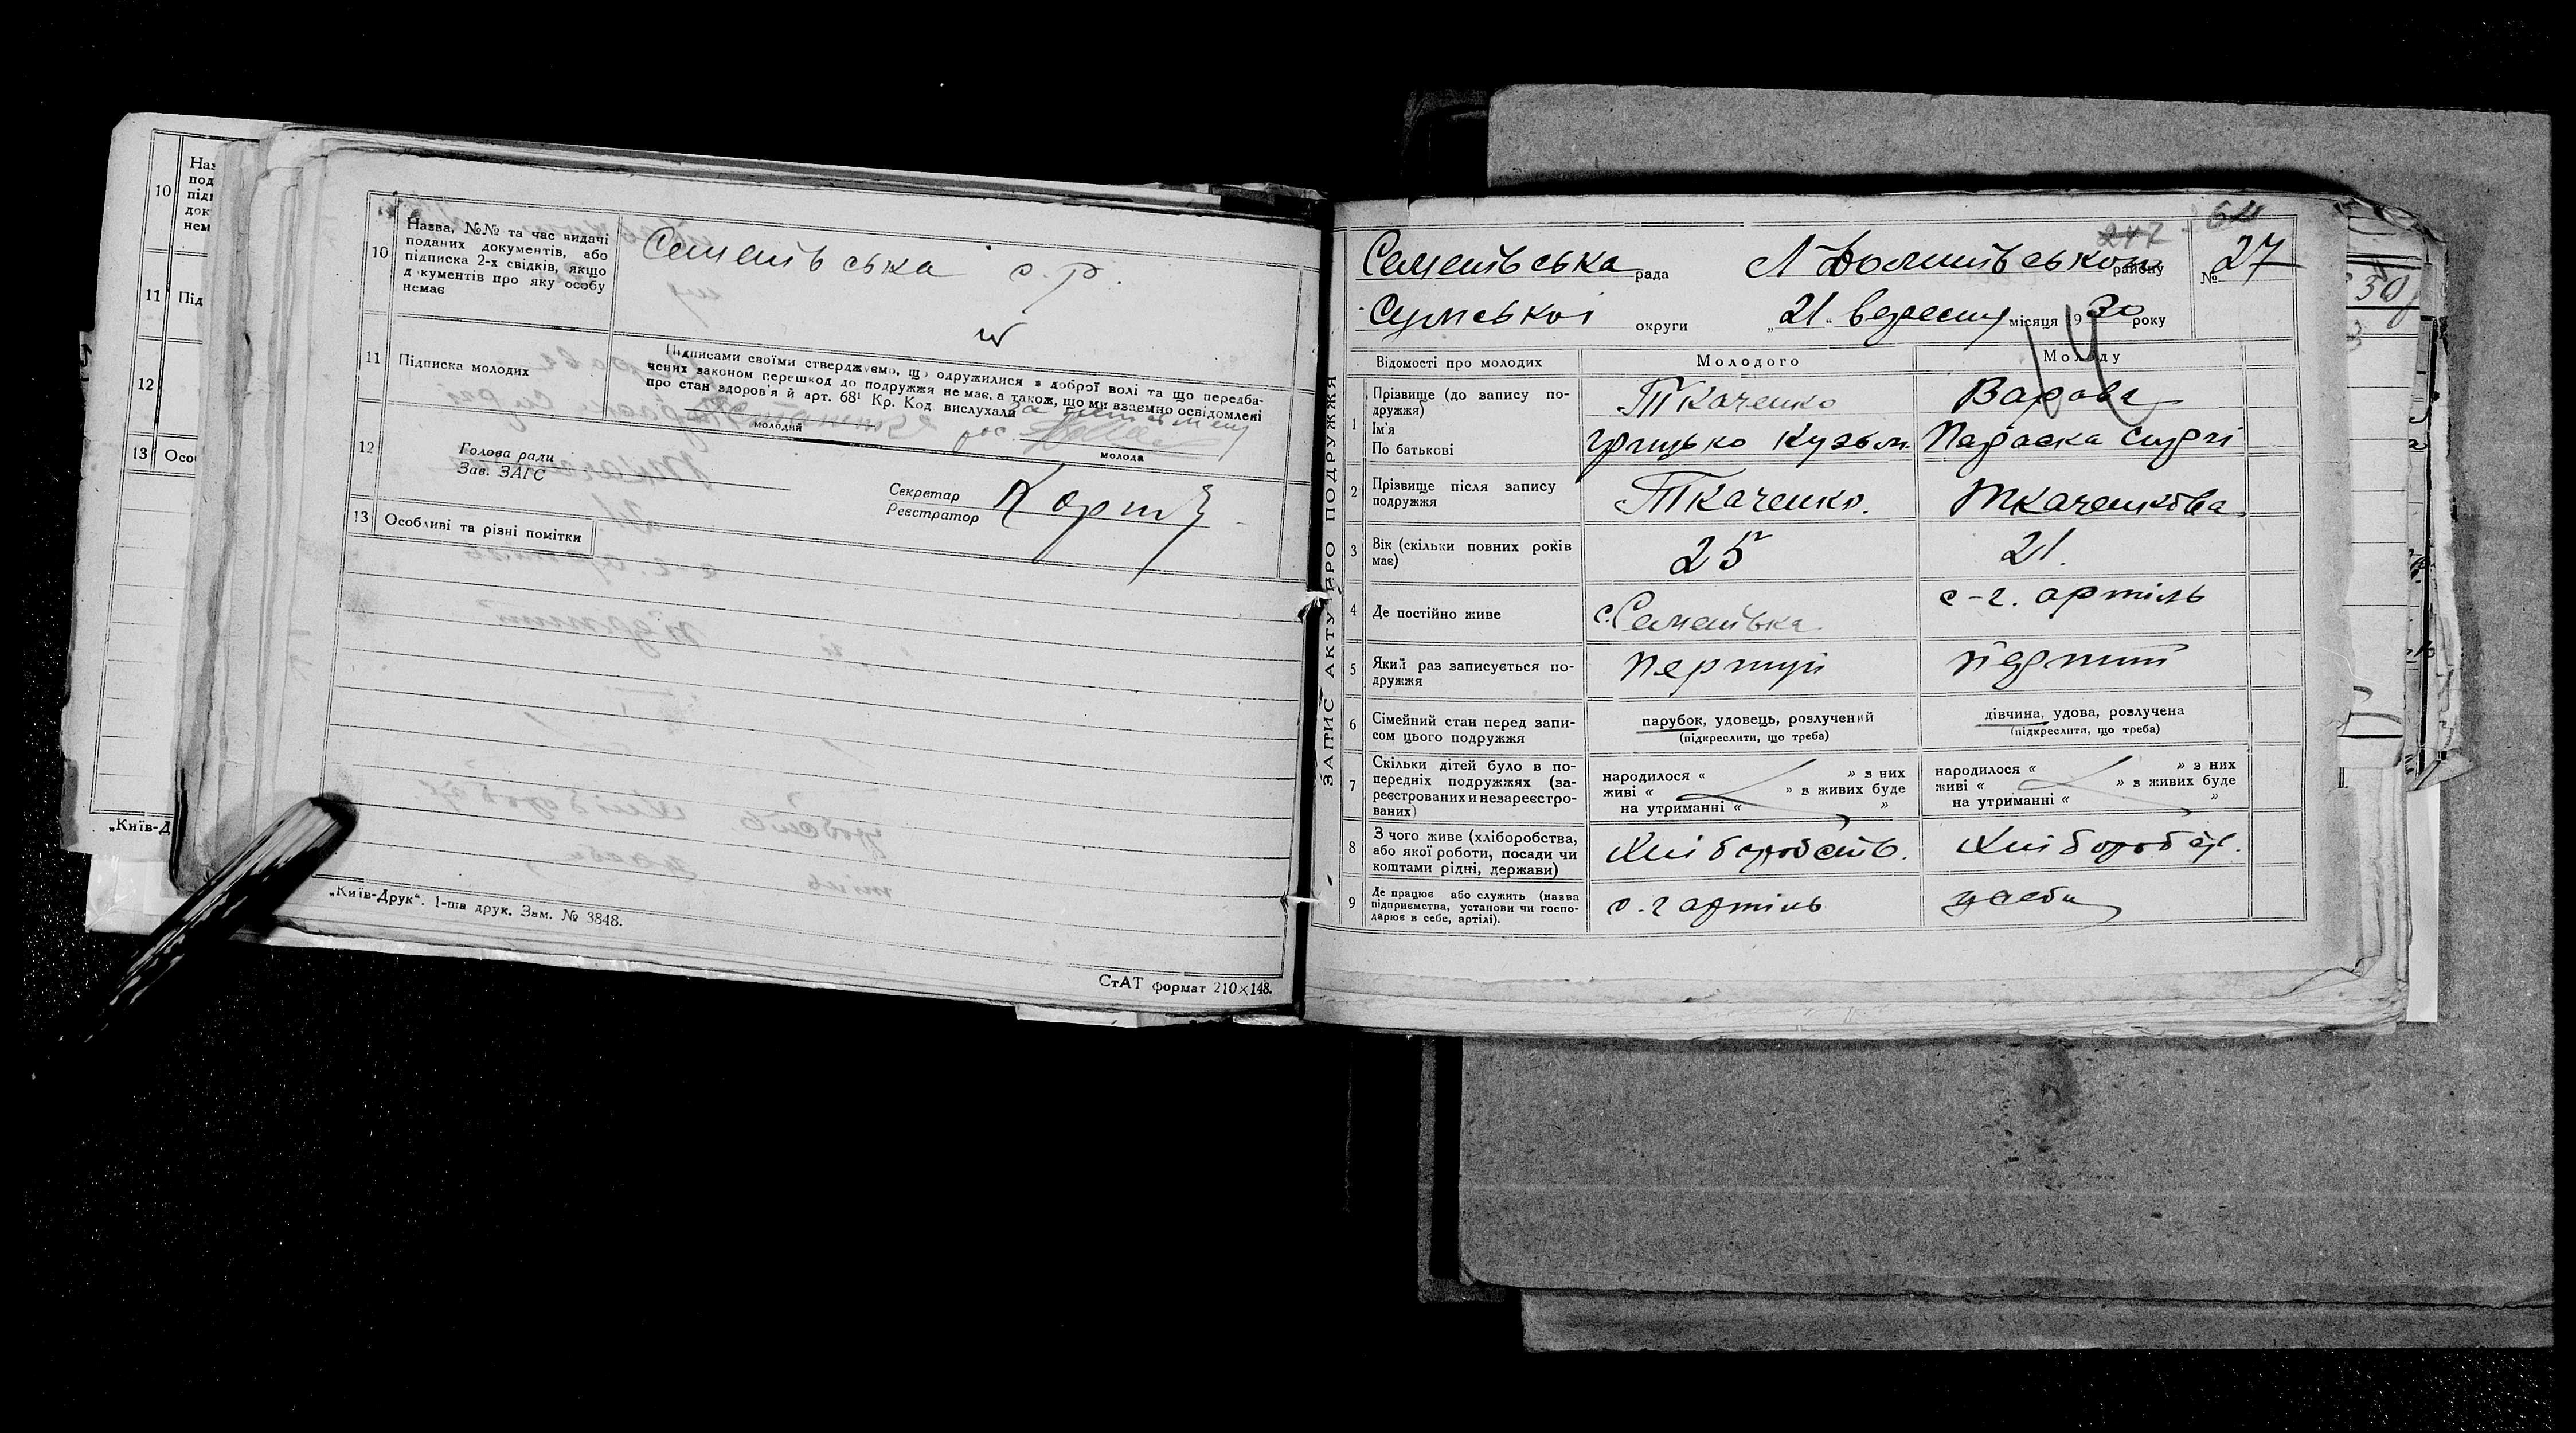 10
11
12
13
„Київ-Д
10
Назва, №№ та час видачі
поданих документів, або
підписка 2-х свідків, якщо
д кументів про яку особу
немає
Семенівська с. р.
11 Підписка молодих
Підписами своїми стверджуємо, що одружилися з доброї волі та що передба-
чених законом перешкод до подружжя немає, а також, що ми взаємно освідомлені
про стан здоров'я й арт. 68¹ Кр. Код вислухали
молодий
молода
12
Голова ради
Зав. ЗАГС
Секретар
Реєстратор
13 Особливі та різні помітки
„Київ-Друк“. 1-ша друк. Зам. № 3848.
СтАТ формат 210×148.
ЗАПИС АКТУ ПРО ПОДРУЖЖЯ
247
Семенівська рада
району
№ 27
Сумської округи „21“ вересня місяця 1930 року
Відомості про молодих
Молодого
Молоду
1
Прізвище (до запису по-
дружжя)
Ткаченко
Ім'я
По батькові
Грицько Кузьм.
Параска Сидрі
2
Прізвище після запису
подружжя
Ткаченко.
Ткаченкова
3
Вік (скільки повних років
має)
25
21.
4
Де постійно живе
с. Семенівка
с-г. артіль
5
Який раз записується по-
дружжя
перший
перший
6
Сімейний стан перед запи-
сом цього подружжя
парубок, удовець, розлучений
(підкреслити, що треба)
дівчина, удова, розлучена
(підкреслити, що треба)
7
Скільки дітей було в по-
передніх подружжях (за-
реєстрованих и незареєстро-
ваних)
народилося « » з них
живі « » з живих буде
на утриманні « »
народилося « » з них
живі « » з живих буде
на утриманні « »
8
З чого живе (хліборобства,
або якої роботи, посади чи
коштами рідні, держави)
9
Де працює або служить (назва
підприємства, установи чи госпо-
дарює в себе, артілі).
с. г артіль